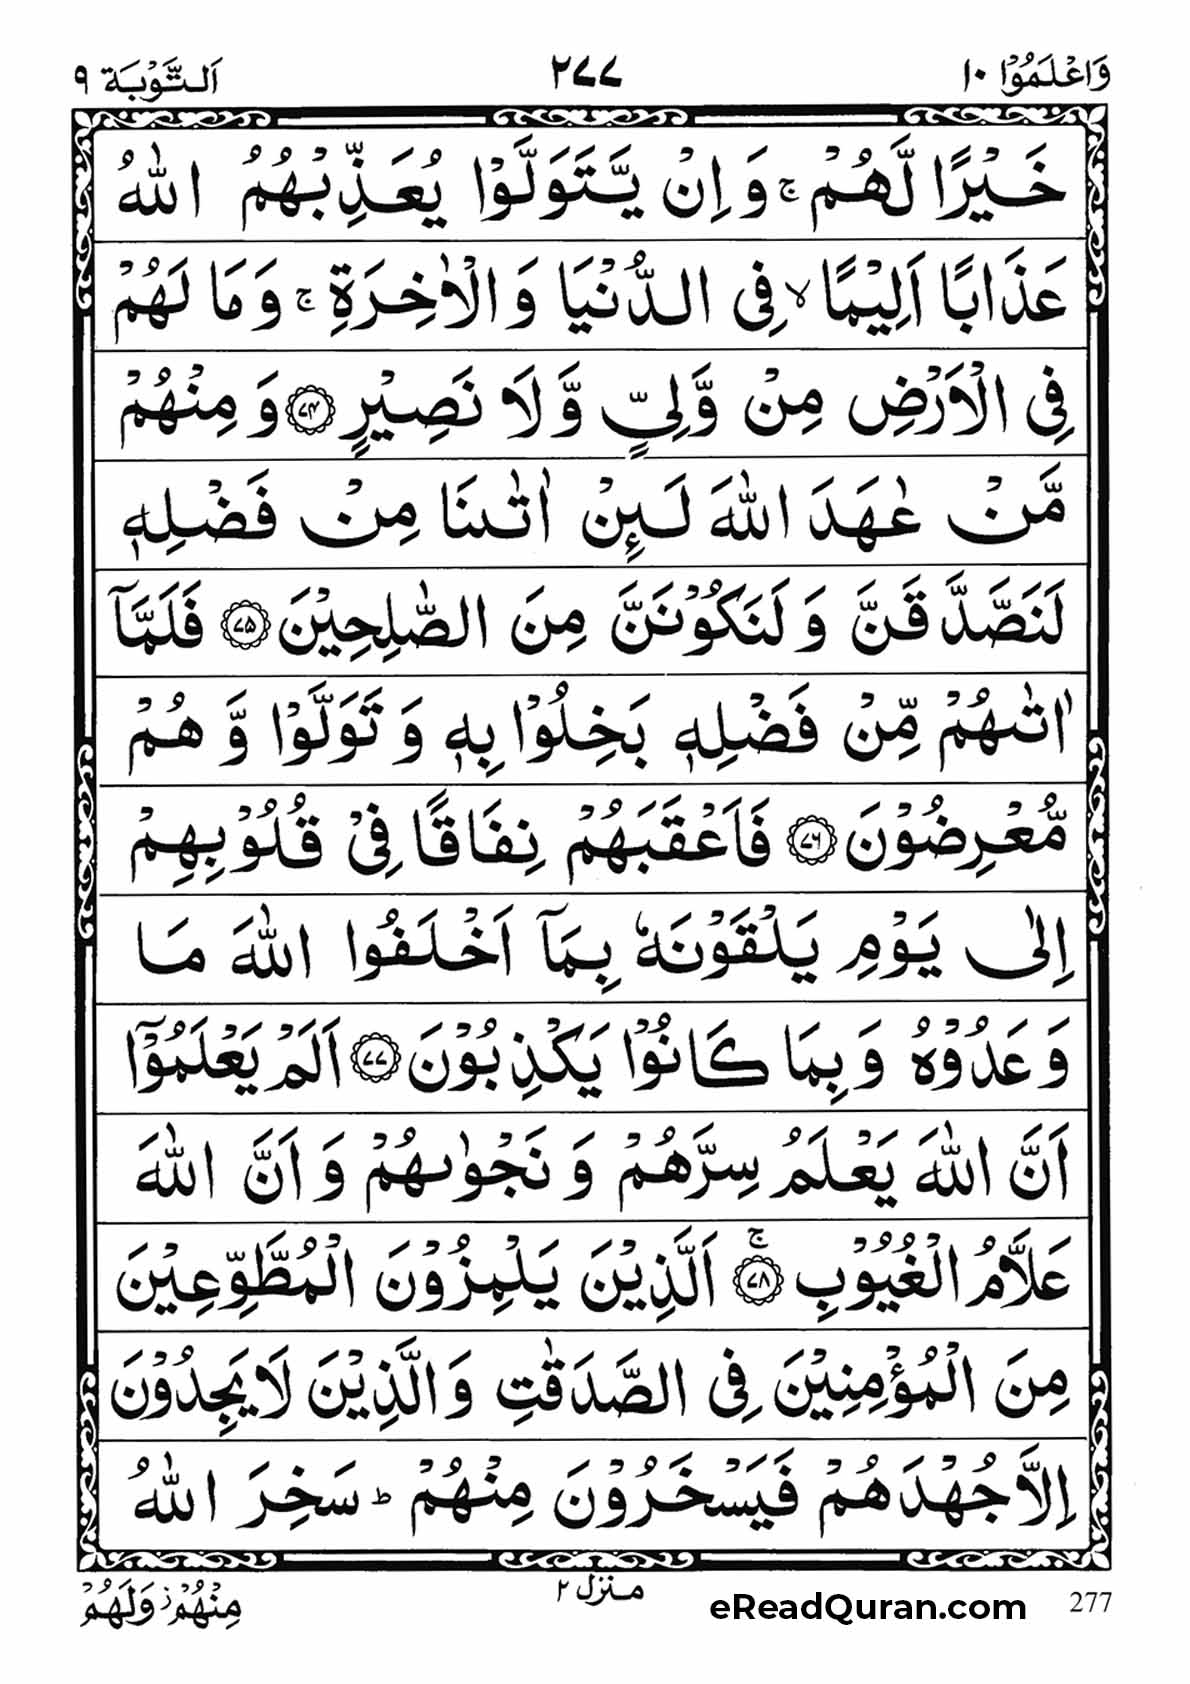 وَاعْلَمُوْۤا ۱۰
۲۷۷
اَلتَّوْبَة ۹
خَيْرًا لَّهُمْ ۚ وَاِنْ يَّتَوَلَّوْا يُعَذِّبْهُمُ اللّٰهُ
عَذَابًا اَلِيْمًا ۙ فِى الدُّنْيَا وَالْاٰخِرَةِ ۚ وَمَا لَهُمْ
فِى الْاَرْضِ مِنْ وَّلِىٍّ وَّلَا نَصِيْرٍ ۝۷۴ وَمِنْهُمْ
مَّنْ عٰهَدَ اللّٰهَ لَـئِنْ اٰتٰٮنَا مِنْ فَضْلِهٖ
لَنَصَّدَّقَنَّ وَلَنَكُوْنَنَّ مِنَ الصّٰلِحِيْنَ ۝۷۵ فَلَمَّاۤ
اٰتٰٮهُمْ مِّنْ فَضْلِهٖ بَخِلُوْا بِهٖ وَتَوَلَّوْا وَّهُمْ
مُّعْرِضُوْنَ ۝۷۶ فَاَعْقَبَهُمْ نِفَاقًا فِىْ قُلُوْبِهِمْ
اِلٰى يَوْمِ يَلْقَوْنَهٗ بِمَاۤ اَخْلَفُوا اللّٰهَ مَا
وَعَدُوْهُ وَبِمَا كَانُوْا يَكْذِبُوْنَ ۝۷۷ اَلَمْ يَعْلَمُوْۤا
اَنَّ اللّٰهَ يَعْلَمُ سِرَّهُمْ وَنَجْوٰٮهُمْ وَاَنَّ اللّٰهَ
عَلَّامُ الْغُيُوْبِ ۝۷۸ ۚ اَلَّذِيْنَ يَلْمِزُوْنَ الْمُطَّوِّعِيْنَ
مِنَ الْمُؤْمِنِيْنَ فِى الصَّدَقٰتِ وَالَّذِيْنَ لَا يَجِدُوْنَ
اِلَّا جُهْدَهُمْ فَيَسْخَرُوْنَ مِنْهُمْ ؕ سَخِرَ اللّٰهُ
مِنْهُمْ ز وَلَهُمْ
منزل ۲
eReadQuran.com
277